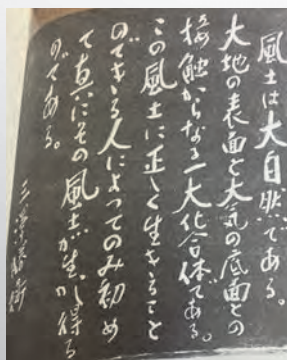 風土は大自然である。
大地の表面と大気の底面との
接触からなる一大化合体である。
この風土に正しく生きること
のできる人によってのみ初め
て真にその風土が生かし得る
のである。
三澤勝衛